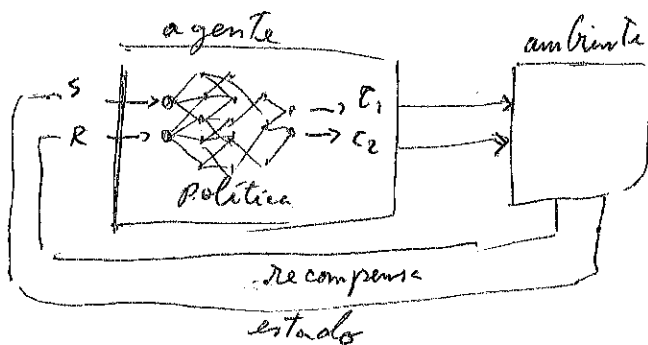 agente
ambiente
S
R
τ1
τ2
política
recompensa
estado